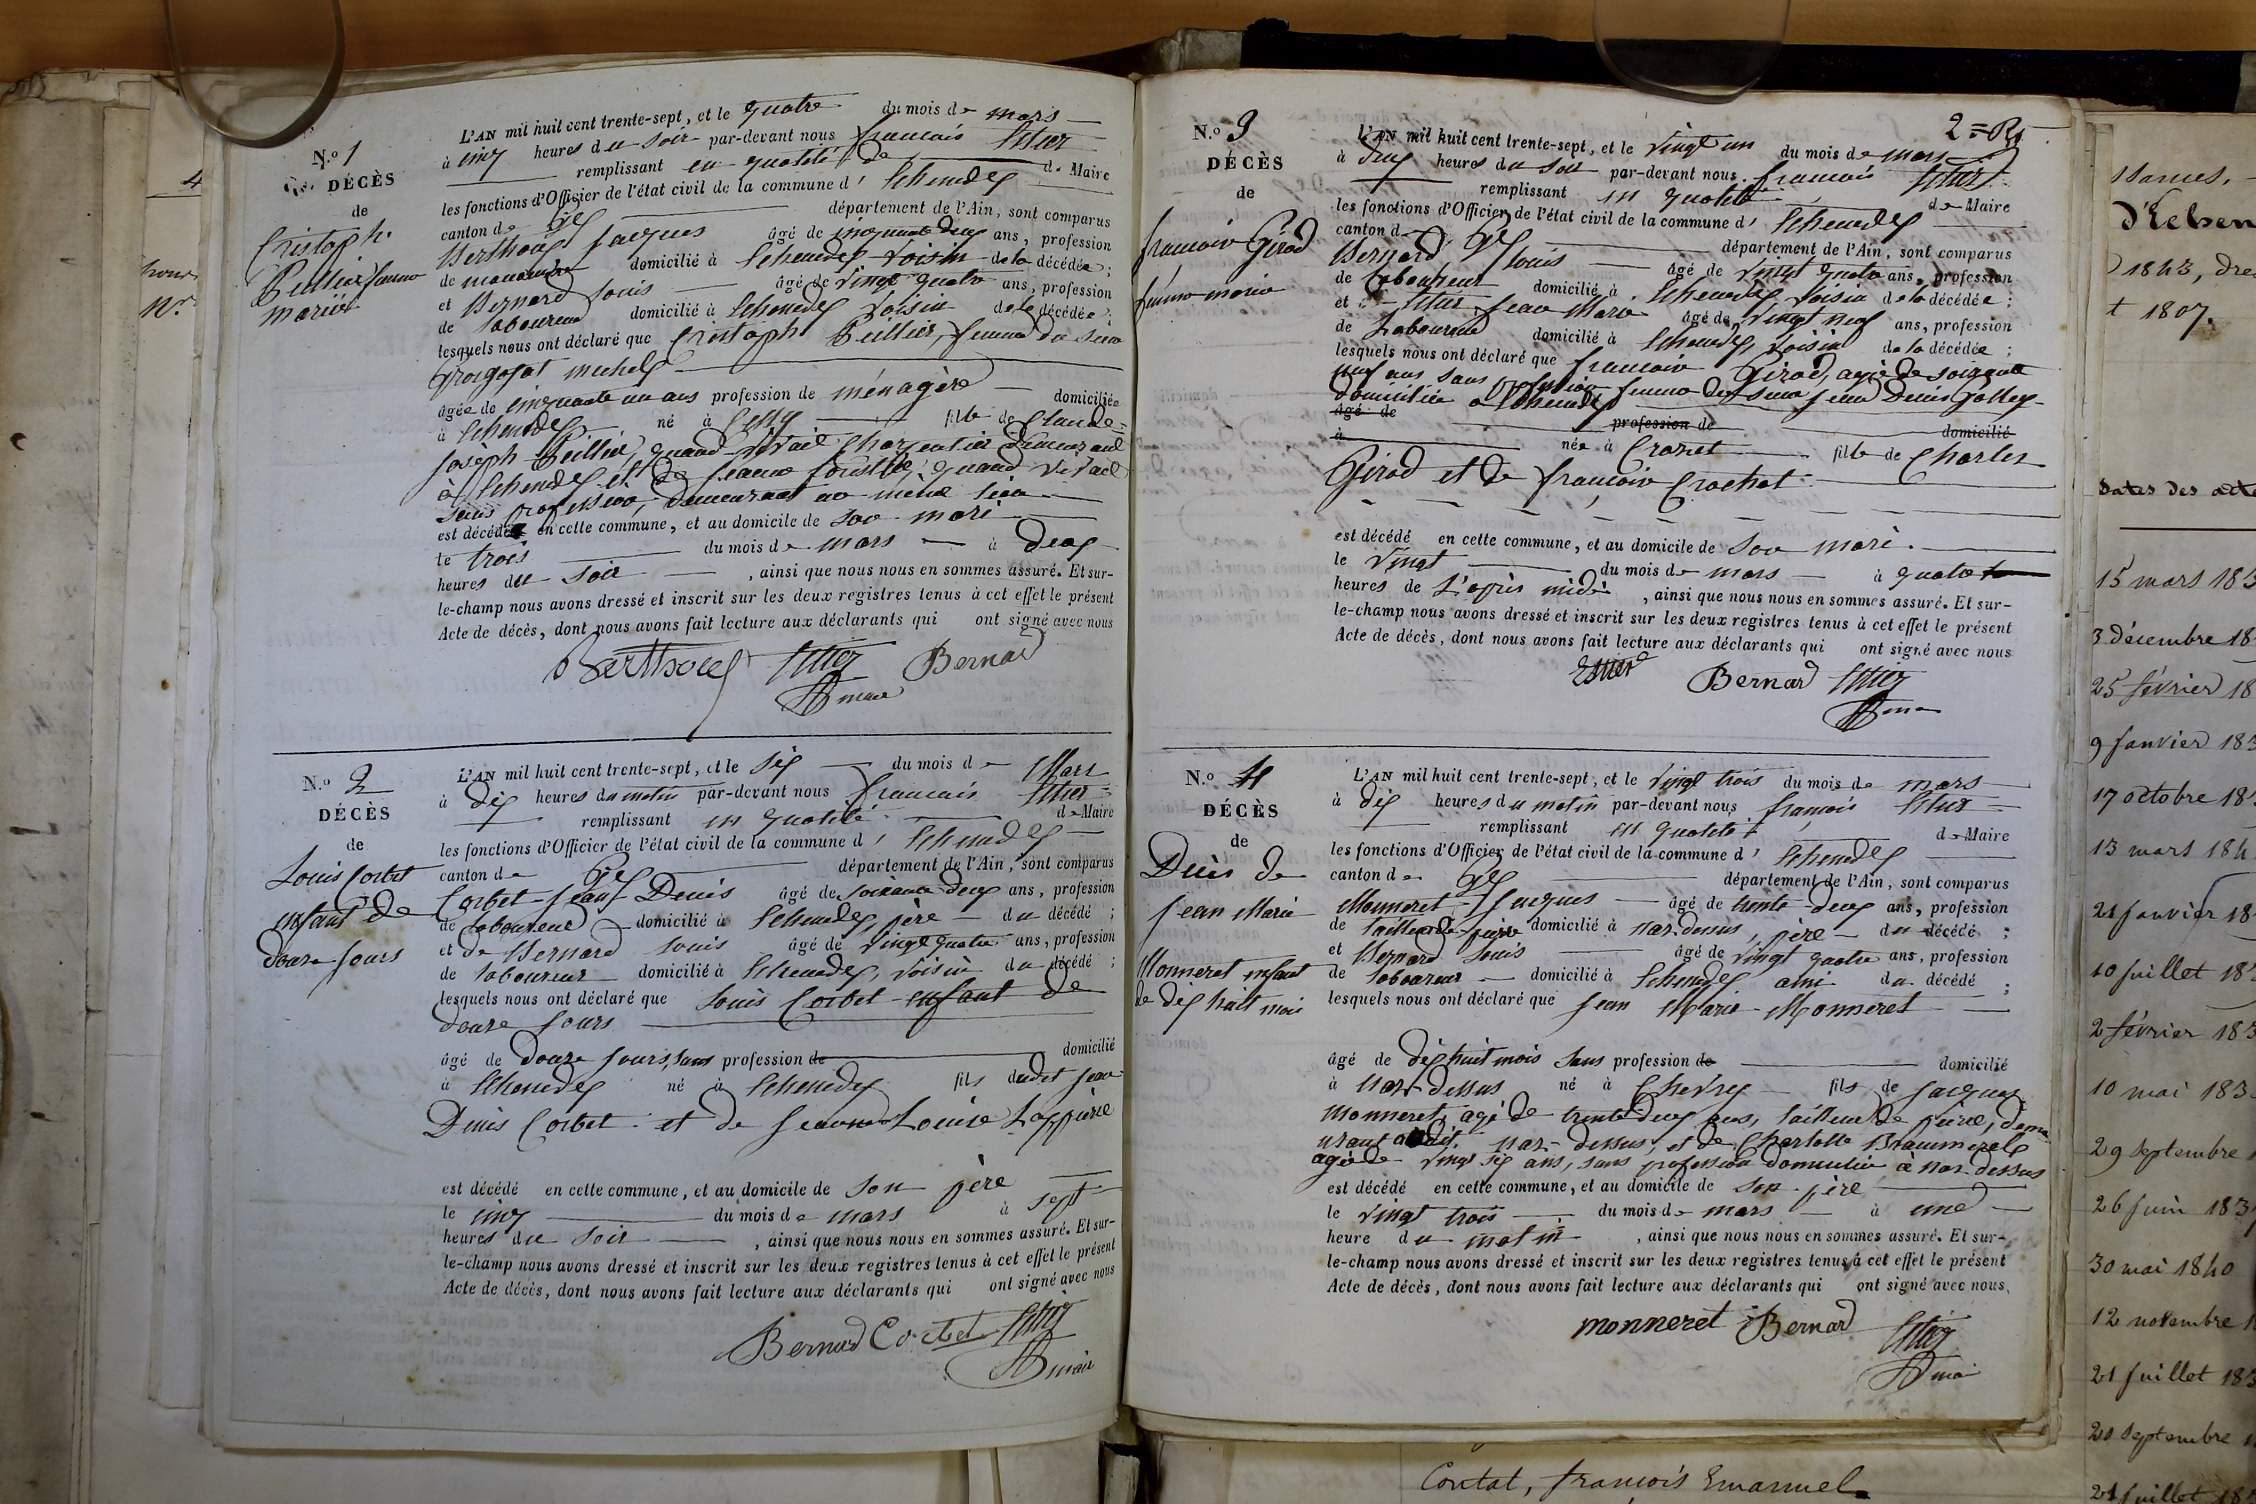 N.o 1
DÉCÈS
de
Cristoph.
Peillier femme
mariée
L'AN mil huit cent trente-sept, et le quatre du mois de mars
à cinq heures du soir par-devant nous françois
remplissant en qualité de de Maire
les fonctions d'Officier de l'état civil de la commune d' Echenevex
canton de Gex département de l'Ain, sont comparus
Berthouz Jacques âgé de cinquante deux ans, profession
de manoeuvre domicilié à Echenevex voisin de la décédée;
et Bernard Louis âgé de vingt quatre ans, profession
de laboureur domicilié à Echenevex voisin de la décédée;
lesquels nous ont déclaré que Cristoph Peillier, femme du sieur
Grosgojat michel
âgée de cinquante un ans profession de ménagère domiciliée
à Echenevex né à Cessy fille de Claude-
joseph Peillier, quand vivait Charpentier demeurant
à Echenevex et de jeanne quand vivait
sans profession, demeurant au même lieu
est décédée en cette commune, et au domicile de son mari
le trois du mois de mars à deux
heures du soir, ainsi que nous nous en sommes assuré. Et sur-
le-champ nous avons dressé et inscrit sur les deux registres tenus à cet effet le présent
Acte de décès, dont nous avons fait lecture aux déclarants qui ont signé avec nous
Bernard
maire
N.o 2
DÉCÈS
de
Louis Corbet
enfant de
douze jours
L'AN mil huit cent trente-sept, et le six du mois de Mars
à dix heures du matin par-devant nous francais
remplissant en qualité de Maire
les fonctions d'Officier de l'état civil de la commune d' Echenevex
canton de Gex département de l'Ain, sont comparus
Corbet jean Denis âgé de soixante deux ans, profession
de laboureur domicilié à Echenevex, père du décédé;
et de Bernard Louis âgé de vingt quatre ans, profession
de laboureur domicilié à Echenevex, voisin du décédé;
lesquels nous ont déclaré que Louis Corbet enfant de
douze jours
âgé de douze jours, sans profession de domicilié
à Echenevex né à Echenevex fils dudit jean
Denis Corbet et de jeanne Louise Lappierre
est décédé en cette commune, et au domicile de son père
le cinq du mois de mars à sept
heures du soir, ainsi que nous nous en sommes assuré. Et sur-
le-champ nous avons dressé et inscrit sur les deux registres tenus à cet effet le présent
Acte de décès, dont nous avons fait lecture aux déclarants qui ont signé avec nous
Bernard Corbet
maire
2
N.o 3
DÉCÈS
de
francoise Girod
femme mariée
L'AN mil huit cent trente-sept, et le vingt un du mois de mars
à deux heures du soir par-devant nous francois
remplissant en qualité de Maire
les fonctions d'Officier de l'état civil de la commune d' Echenevex
canton d Gex département de l'Ain, sont comparus
Bernard Louis âgé de vingt quatre ans, profession
de Laboureur domicilié à Echenevex voisin de la décédée;
et jean Marie âgé de vingt neuf ans, profession
de Laboureur domicilié à Echenevex, voisin de la décédée;
lesquels nous ont déclaré que francoise Girod, agée de soixante
neuf ans sans profession femme du sieur jean Denis Golley
domiciliée a Echenevex
âgé de profession de
à domicilié
née à Crozet fille de Charles
Girod et de françoise Crochat
est décédé en cette commune, et au domicile de son mari
le vingt du mois de mars à quatre
heures de L'après midi, ainsi que nous nous en sommes assuré. Et sur-
le-champ nous avons dressé et inscrit sur les deux registres tenus à cet effet le présent
Acte de décès, dont nous avons fait lecture aux déclarants qui ont signé avec nous
Bernard
N.o 4
DÉCÈS
de
Décès de
jean Marie
Monneret enfant
de dix huit mois
L'AN mil huit cent trente-sept, et le vingt trois du mois de mars
à dix heures du matin par-devant nous françois
remplissant en qualité de Maire
les fonctions d'Officier de l'état civil de la commune d' Echenevex
canton de Gex département de l'Ain, sont comparus
Monneret Jacques âgé de trente deux ans, profession
de tailleur de pierre domicilié à Naz-dessus, père du décédé;
et Bernard Louis âgé de vingt quatre ans, profession
de laboureur domicilié à Echenevex ami du décédé;
lesquels nous ont déclaré que jean Marie Monneret
âgé de dix huit mois sans profession de domicilié
à Naz-dessus né à Chevry fils de jacques
monneret, agé de trente deux ans, tailleur de pierre, deme-
urant audit Naz-dessus, et de Charlotte
agée de vingt six ans, sans profession domiciliée à Naz-dessus
est décédé en cette commune, et au domicile de son père
le vingt trois du mois de mars à une
heure du matin, ainsi que nous nous en sommes assuré. Et sur-
le-champ nous avons dressé et inscrit sur les deux registres tenus à cet effet le présent
Acte de décès, dont nous avons fait lecture aux déclarants qui ont signé avec nous.
monneret Bernard
4
t 1807.
Dates des acte
15 mars 183
3 décembre 18
25 février 18
9 janvier 183
17 octobre 18
13 mars 184
21 janvier 18
10 juillet 18
2 février 183
10 mai 183
29 septembre
26 juin 183
30 mai 1840
12 novembre
21 juillet 183
20 septembre
21 juillet 18
Contat, françois Emanuel